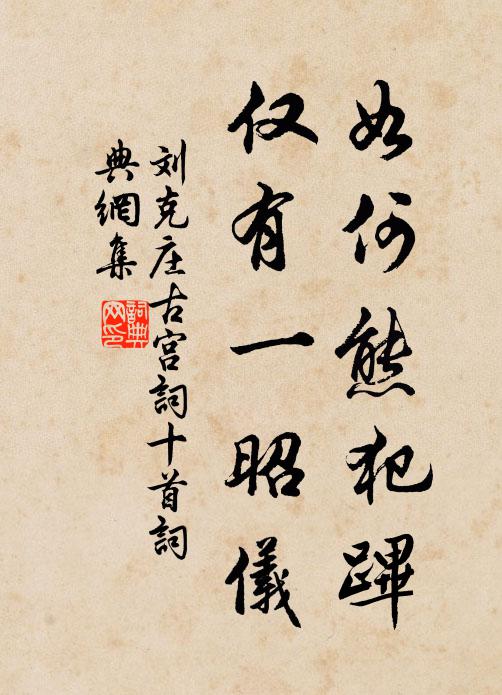 如何熊犯蹕
仅有一昭儀
刘克庄古宫詞十首詞
典網集
詞典网印